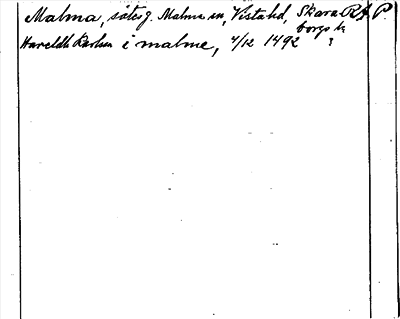 Malma, säteg. Malma sn, Vista hd, Skara- RA P.
borgs l.
Haraldh Karlsson i malme, 4/12 1492